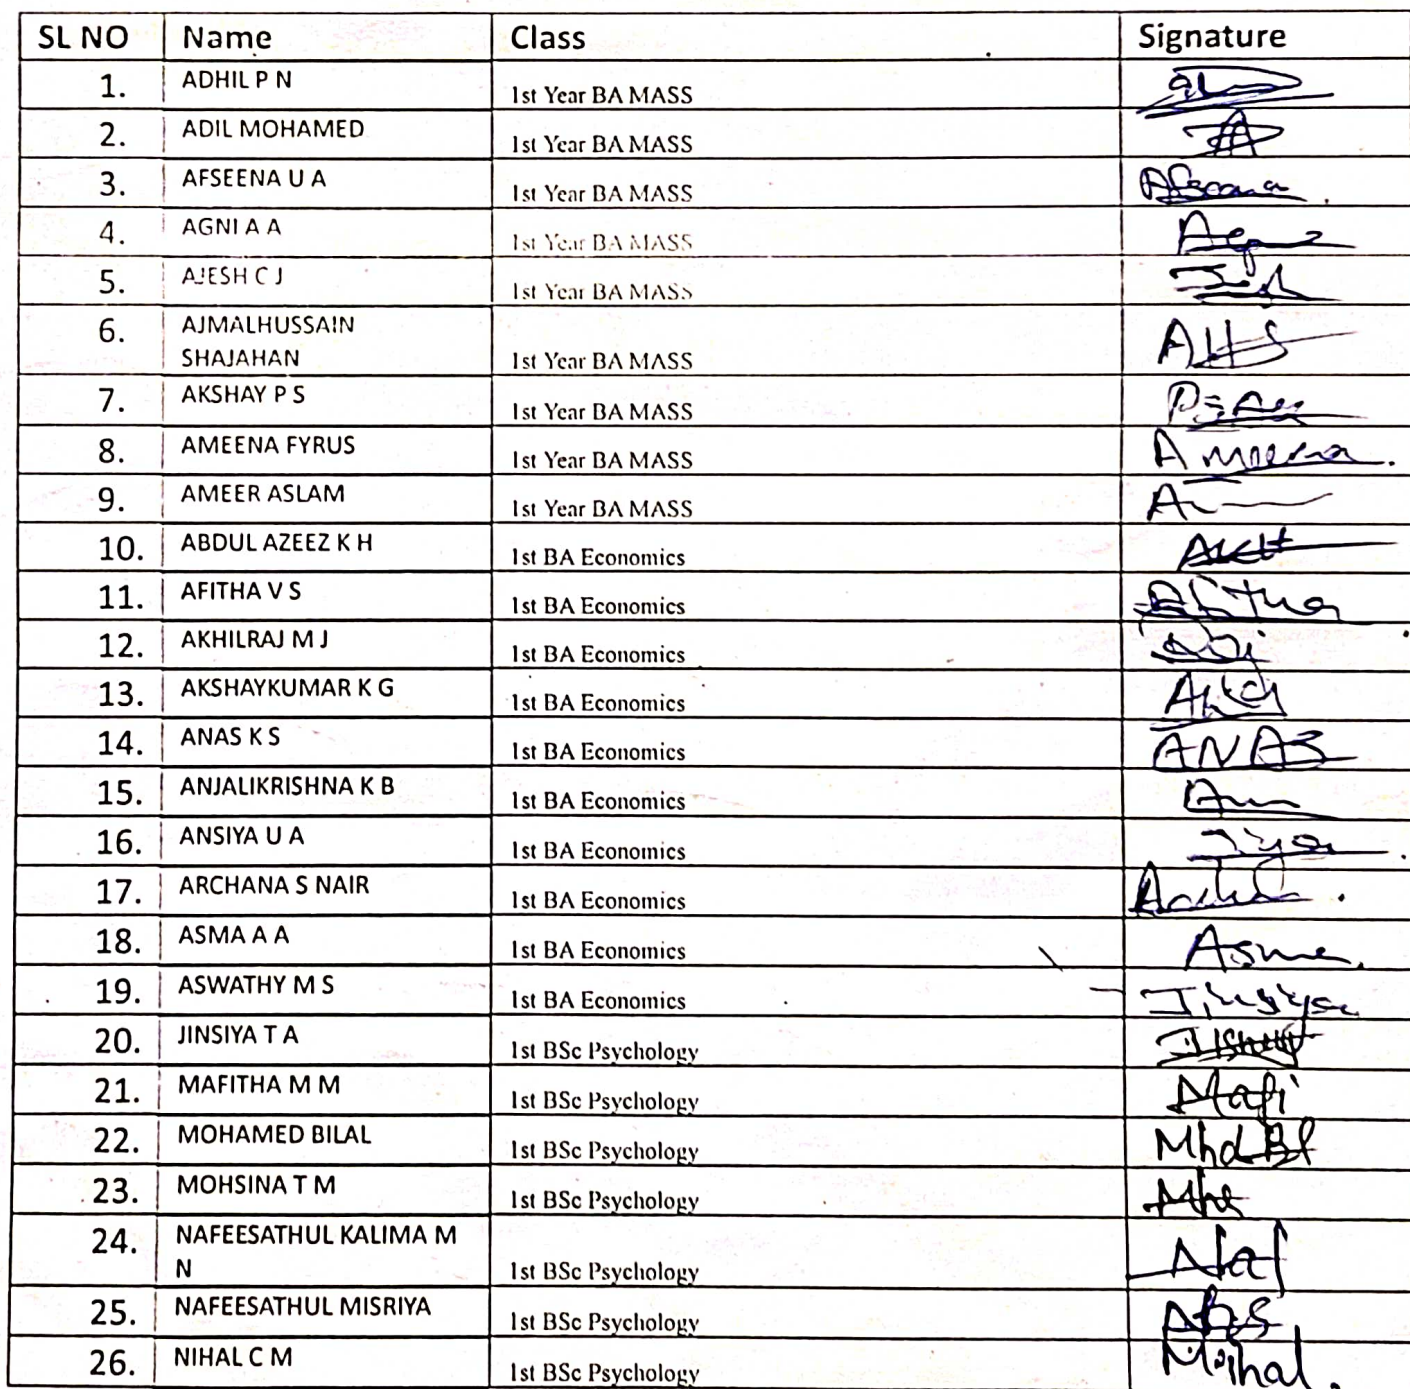 SL NO Name Class Signature
1. ADHIL P N 1st Year BA MASS
2. ADIL MOHAMED 1st Year BA MASS
3. AFSEENA U A 1st Year BA MASS Afseena
4. AGNI A A 1st Year BA MASS
5. AJESH C J 1st Year BA MASS
6. AJMALHUSSAIN
SHAJAHAN 1st Year BA MASS AHS
7. AKSHAY P S 1st Year BA MASS
8. AMEENA FYRUS 1st Year BA MASS Ameena
9. AMEER ASLAM 1st Year BA MASS
10. ABDUL AZEEZ K H 1st BA Economics
11. AFITHA V S 1st BA Economics
12. AKHILRAJ M J 1st BA Economics
13. AKSHAYKUMAR K G 1st BA Economics
14. ANAS K S 1st BA Economics ANAS
15. ANJALIKRISHNA K B 1st BA Economics
16. ANSIYA U A 1st BA Economics
17. ARCHANA S NAIR 1st BA Economics
18. ASMA A A 1st BA Economics Asma
19. ASWATHY M S 1st BA Economics Jinsiya
20. JINSIYA T A 1st BSc Psychology
21. MAFITHA M M 1st BSc Psychology Mafi
22. MOHAMED BILAL 1st BSc Psychology Mhd Bl
23. MOHSINA T M 1st BSc Psychology
24. NAFEESATHUL KALIMA M
N 1st BSc Psychology Naf
25. NAFEESATHUL MISRIYA 1st BSc Psychology
26. NIHAL C M 1st BSc Psychology